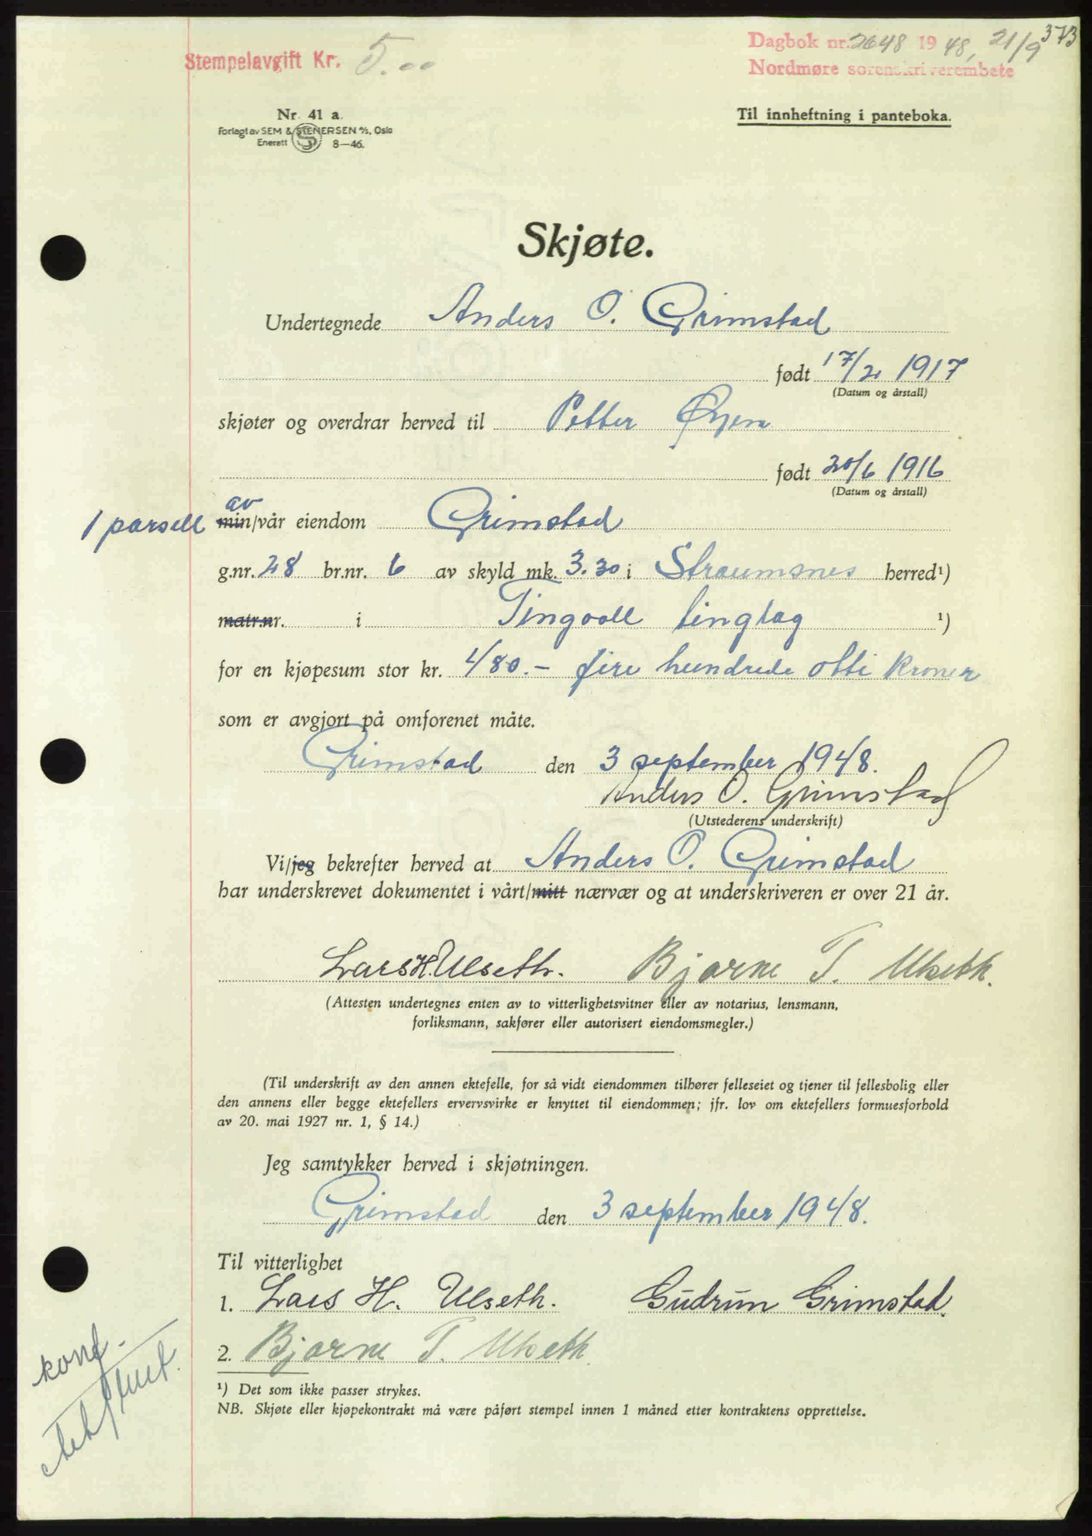 373
Stempelavgift Kr. 5.00
Dagbok nr. 2648 1948, 21/9
Nordmøre sorenskriverembete
Nr. 41 a.
Forlagt av SEM & STENERSEN A/S, Oslo
Enerett S 8—46.
Til innheftning i panteboka.
Skjøte.
Undertegnede Anders O. Grimstad
født 17/2 1917
(Datum og årstall)
skjøter og overdrar herved til Petter Øyen
født 20/6 1916
(Datum og årstall)
1 parsell av min/vår eiendom Grimstad
g.nr. 28 br.nr. 6 av skyld mk. 3.30 i Straumsnes herred¹)
matr.nr. i Tingvoll tinglag ¹)
for en kjøpesum stor kr. 480.- fire hundrede otti kroner
som er avgjort på omforenet måte.
Grimstad den 3 september 1948.
Anders O. Grimstad
(Utstederens underskrift)
Vi/jeg bekrefter herved at Anders O. Grimstad
har underskrevet dokumentet i vårt/mitt nærvær og at underskriveren er over 21 år.
Lars H. Ulseth. Bjarne T. Ulseth.
(Attesten undertegnes enten av to vitterlighetsvitner eller av notarius, lensmann,
forliksmann, sakfører eller autorisert eiendomsmegler.)
(Til underskrift av den annen ektefelle, for så vidt eiendommen tilhører felleseiet og tjener til fellesbolig eller
den annens eller begge ektefellers ervervsvirke er knyttet til eiendommen; jfr. lov om ektefellers formuesforhold
av 20. mai 1927 nr. 1, § 14.)
Jeg samtykker herved i skjøtningen.
Grimstad den 3 september 1948.
Til vitterlighet
1. Lars H. Ulseth. Gudrun Grimstad.
2. Bjarne T. Ulseth
konf.
¹) Det som ikke passer strykes.
NB. Skjøte eller kjøpekontrakt må være påført stempel innen 1 måned etter kontraktens opprettelse.